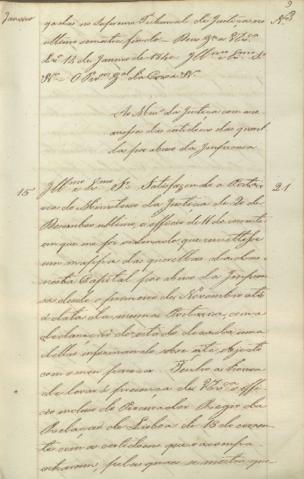 Janeiro
9
gados no Supremo Tribunal de Justiça no
ultimo semestre findo. Deos G.e a V. Ex.a
Lx.a 14 de Janeiro de 1840
O Proc.or G.al da Coroa
Ao Min.o da Justiça com a re-
messa das certidoens das querel-
las por abuso da Imprensa
15
21
Ill.mo e Ex.mo Sr. Satisfazendo a Porta-
ria do Ministerio da Justiça de 20 de
Dezembro ultimo, e officio de 11 do corrente
em que me foi ordenado, que remettesse
um mappa das querellas dadas
nesta Capital por abuso da Impren-
sa desde o primeiro de Novembro até
á data da mesma Portaria, com a
declaração do estado de cada uma
dellas informando sobre este objecto
com o meu parecer. Tenho a honra
de levar á presença de V. Ex.a o offi-
cio incluso do Procurador Regio da
Relação de Lisboa de 13 do corren-
te com as certidoens que o acompa-
nharam, pelas quaes se mostra que